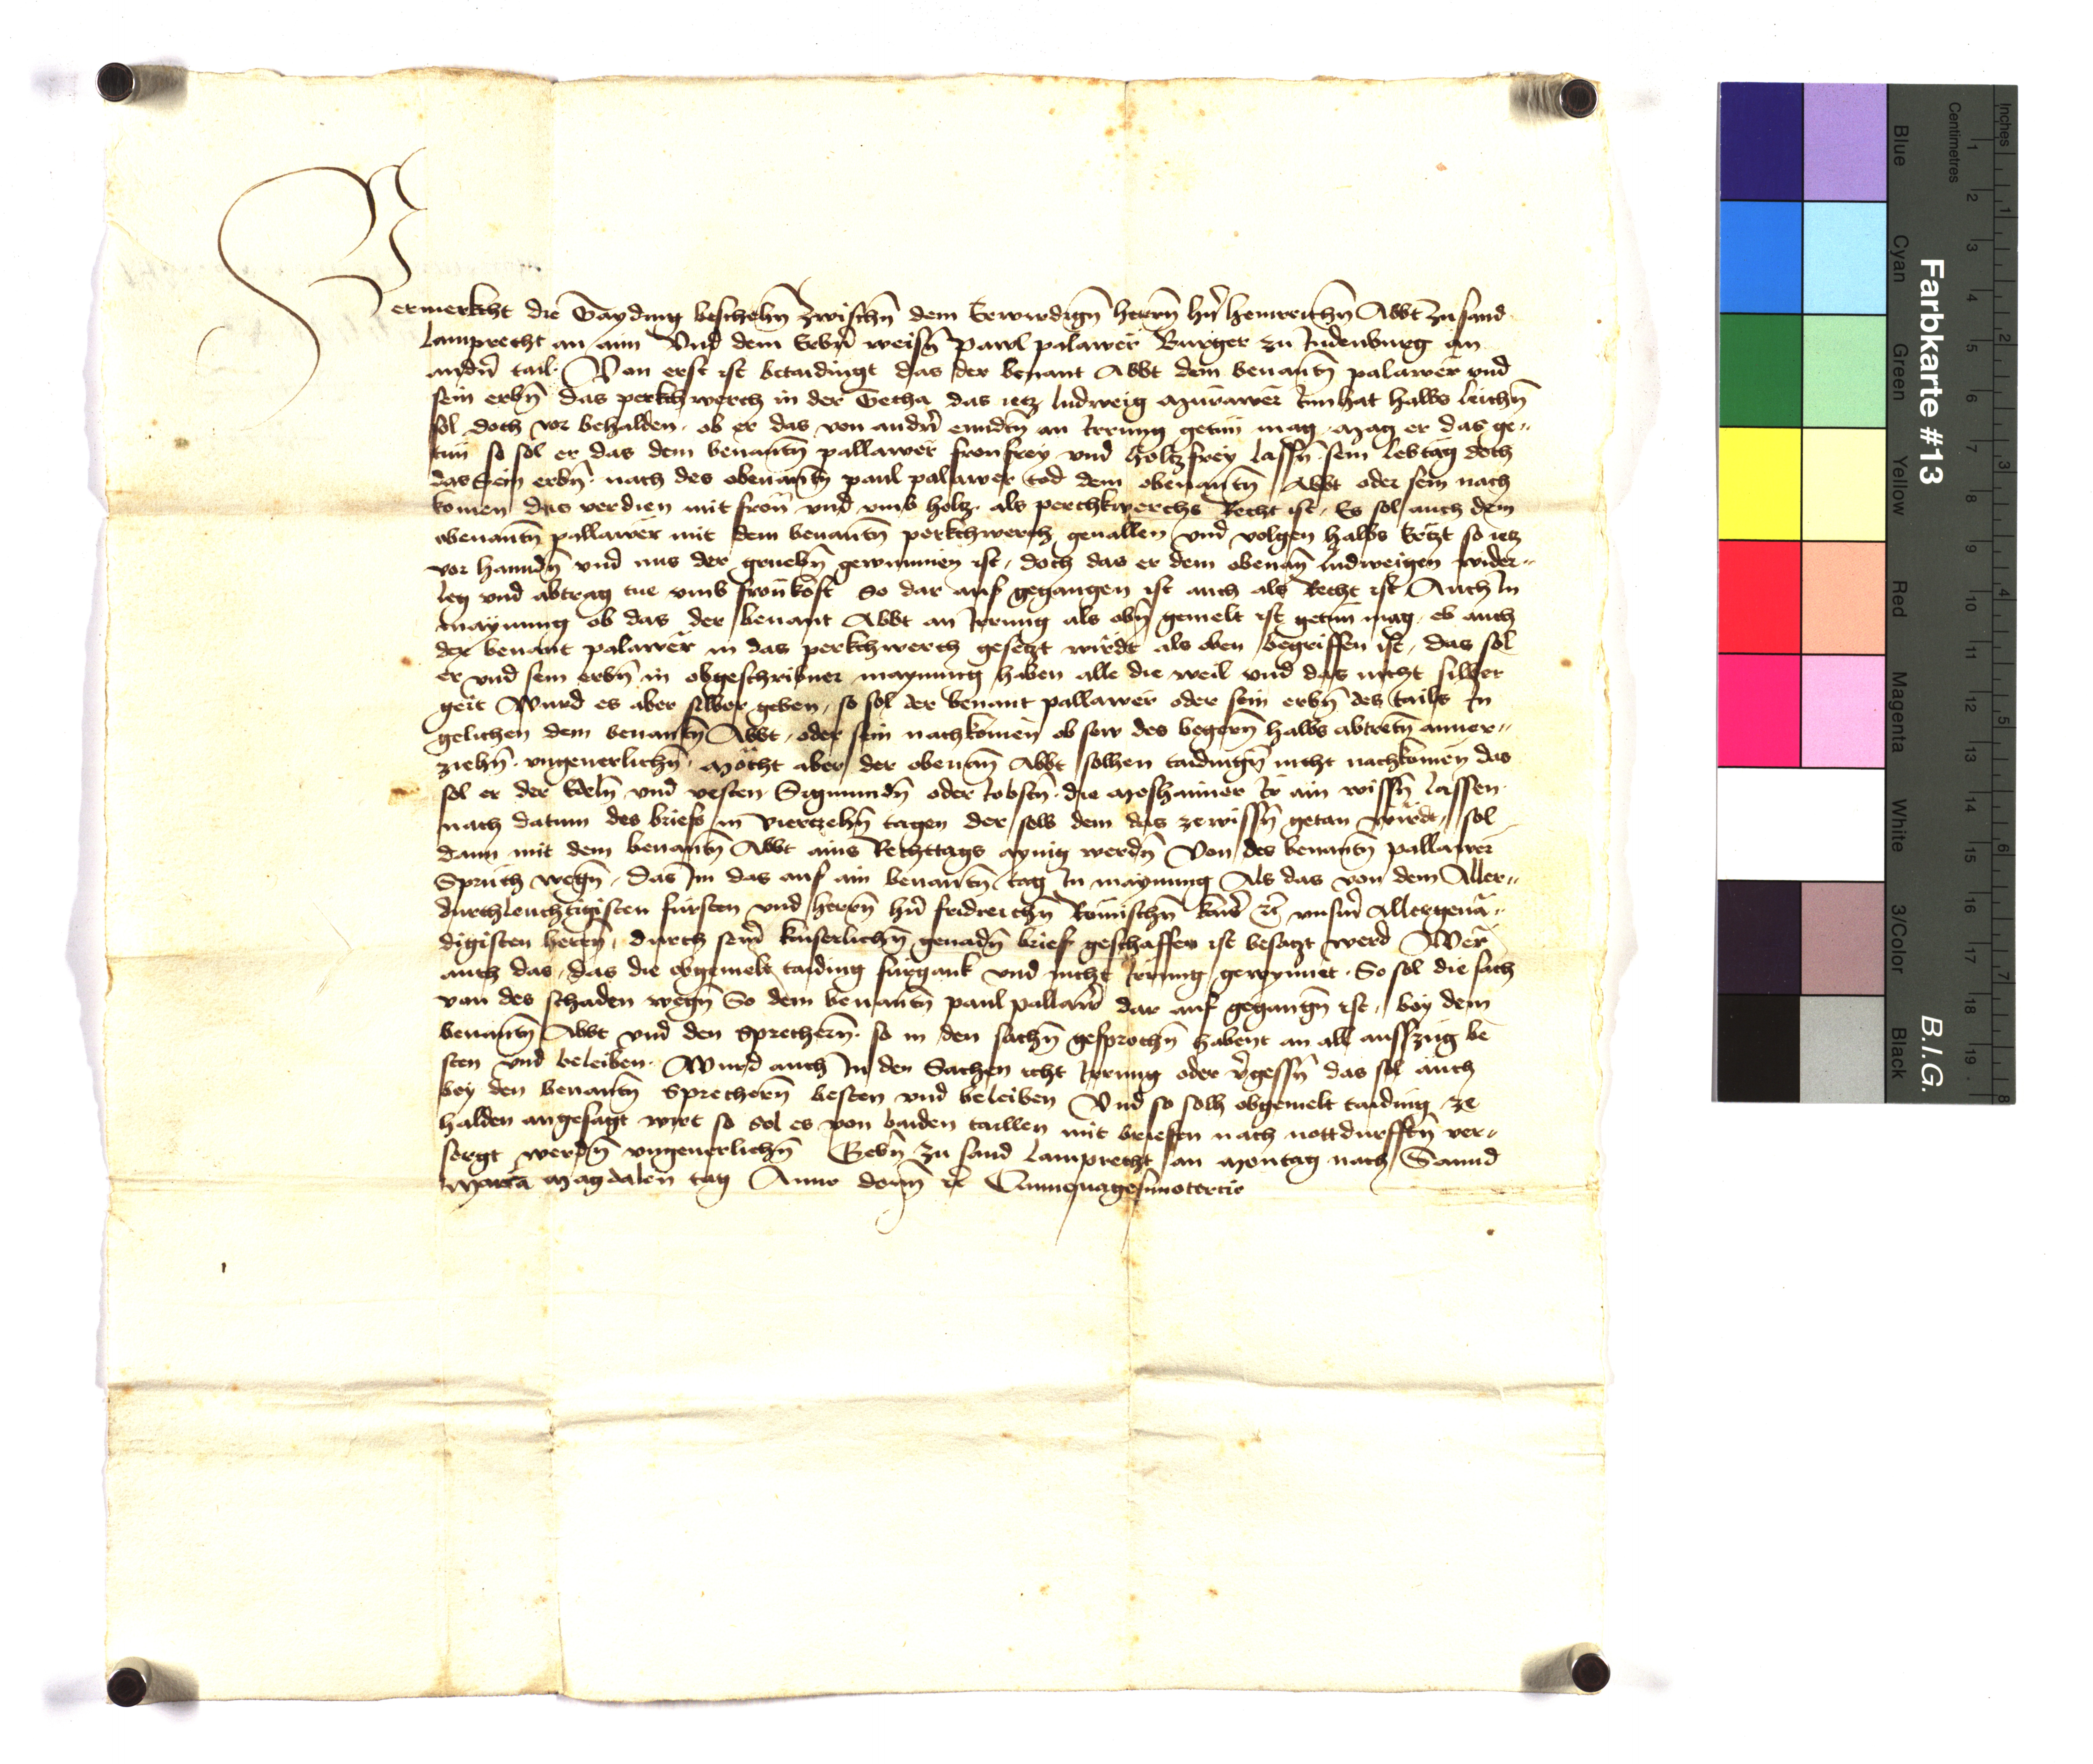 Vermerkcht die Tayding beschehn̄ zwischn̄ dem Erwirdign̄ herrn̄ hn̄ heinreichn̄ Abbt zu sand
Lamprecht an aim Vnd dem Erbn̄ weisn̄ Pawl palawer Burger zu Judenburg an
andn̄ tail. Von erst ist betaidingt das der benant Abbt dem benantn̄ palawer vnd
sein erbn̄ das perkchwerch in der Zecha das ietz ludweig Murawer Inn hat halbs leichn̄
sol doch vor behalden. ob er das von andn̄ enndn̄ an Irrung getun mag. Mag er das ge„
tun so sol er das dem benantn̄ pallawer fronfrey vnd holtzfrey lassn̄ sein lebtag doch
das Sein erbn̄ nach des obenantn̄ paul palawer tod dem obenantn̄ Abbt oder sein nach
komen das verdien mit fron̄ vnd vmb holtz. als perchkwerchs Recht ist. Es sol auch dem
obenantn̄ pallawer mit dem benantn̄ perkchwerch geuallen vnd volgen halbs Ertzt so ietz
vor hanndn̄ vnd aus der gruebn̄ gewunnen ist, doch das er dem obenan̄ ludweigen wider„
leg vnd abtrag tue vmb fronkost So dar auf gegangen ist auch als Recht ist Auch In
maynung ob das der benant Abbt an Irrung als obn̄ gemelt ist getun mag. ob auch
der benant palawer in das perkchwerch gesetzt wirdt als oben begriffen ist, das sol
er vnd sein erbn̄ in obgeschribner maynung haben alle die weil vnd das nicht silber
geit Wurd es aber silber geben, so sol der benant pallawer oder sein erbn̄ des tails In
gelichen dem benantn̄ Abbt, oder sein nachkomen ob sew des begern̄ halbs abtretn̄ anuer„
ziehn̄. vngeuerlichn̄. Möcht aber der obenan̄ Abbt solhen taidingn̄ nicht nachkomen das
sol er der Edeln̄ vnd vesten Sigmundn̄ oder Jobstn̄. die Moshaimer Ir ain wissn̄ lassen
nach datum des briefs in viertzehn̄ tagen der selb dem das zewissn̄ getan wirdt, sol
dann mit dem benantn̄ Abbt ains Rechttags aynig werdn̄ Von des benantn̄ pallawer
Spruch wegn̄, das Im das auf ain benantn̄ tag In maynung Als das von dem Aller„
durchleuchtigisten fursten vnd herrn̄ hn̄ fridreichn̄ Römischn̄ kaiser ec vnserm allergena„
digisten herrn̄, durch seinr kaiserlichn̄ genadn̄ brief geschaffen ist besatzt werd Wer
auch das, das die obgemelt taiding furgank vnd nicht Irrung gewynnet. So sol die sach
von des schaden wegn̄ So dem benantn̄ paul pallawer dar auf gegangn̄ ist, bey dem
benantn̄ Abbt vnd den Sprechern̄. so in den sachn̄ gesprochn̄ habent an all auffzug be
sten vnd beleiben. Wurd auch In den Sachen icht Irrung oder vergessn̄ das sol auch
bey den benantn̄ Sprechern̄ besten vnd beleiben Vnd so solh obgemelt taiding ze
halden angesagt wirt so sol es von baiden taillen mit briefen nach nottdurfftn̄ ver„
sorgt werdn̄ vngeuerlichn̄ Gebn̄ zu sand Lamprecht an Montag nach Sannd
Maria Magdalen tag Anno domī ec Quinquagesimotercio
Farbkarte #13
B.I.G.
Inches 1 2 3 4 5 6 7 8
Centimetres 1 2 3 4 5 6 7 8 9 10 11 12 13 14 15 16 17 18 19
Blue Cyan Green Yellow Red Magenta White 3/Color Black